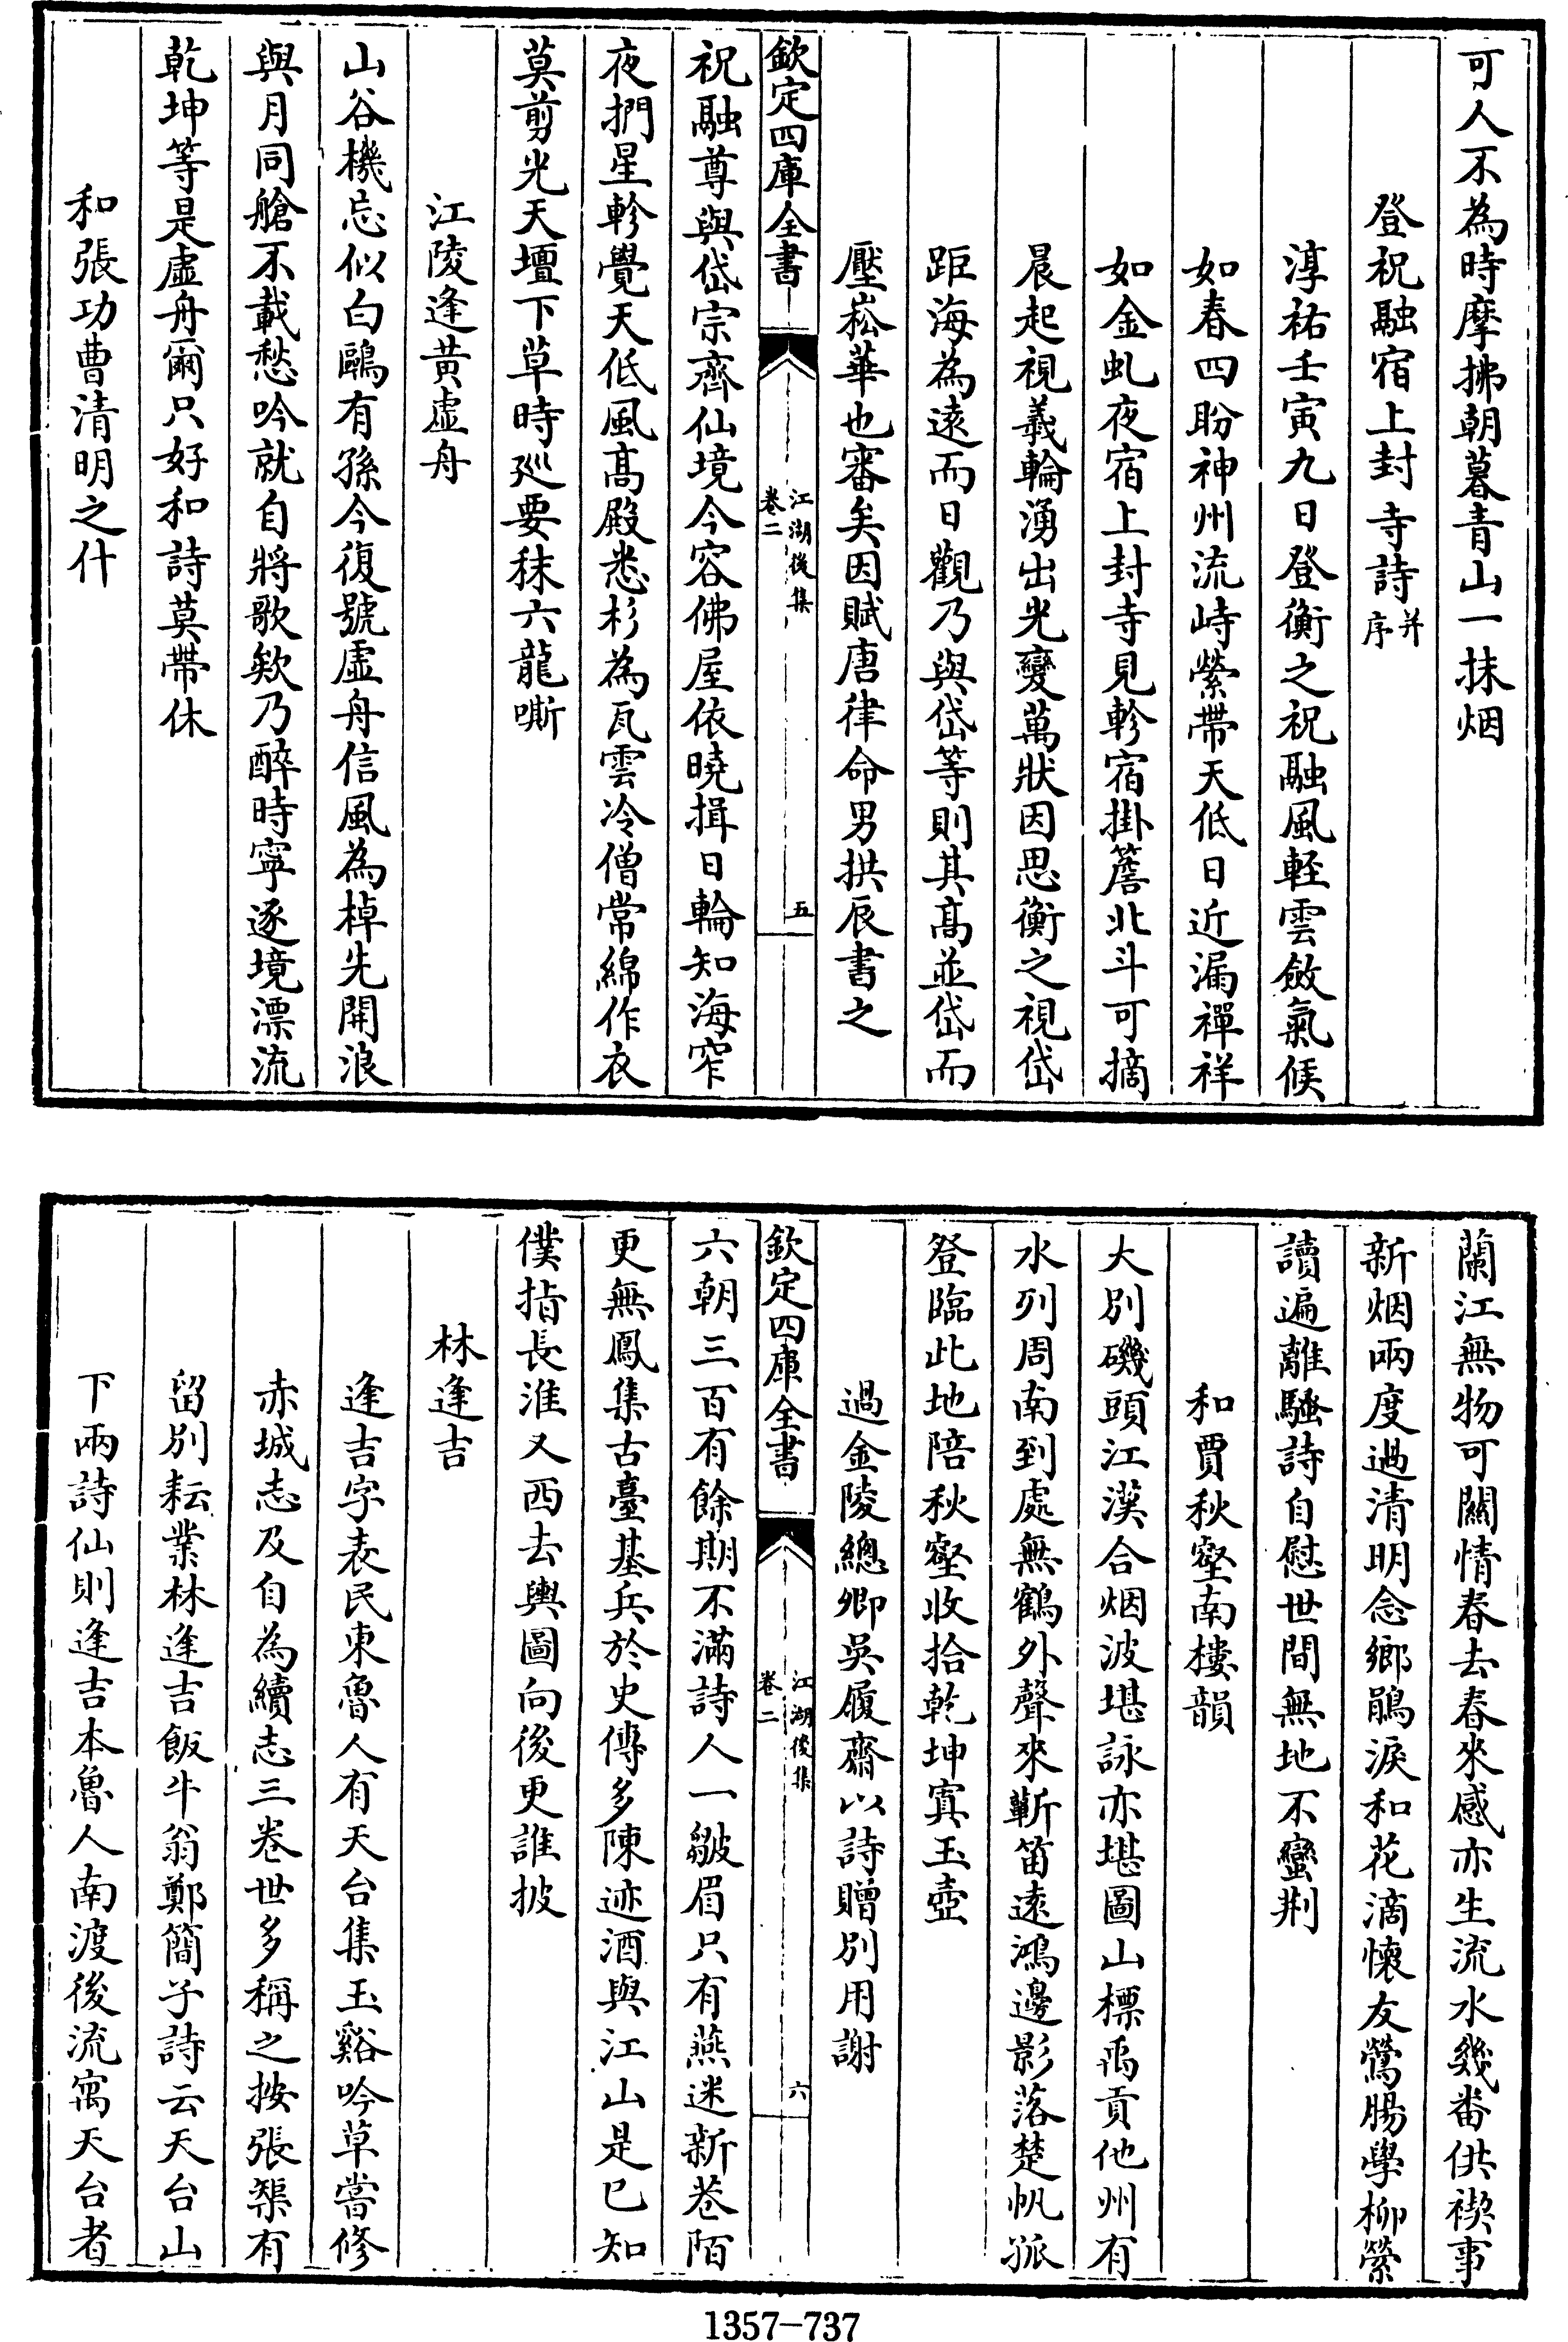 可人不為時摩拂朝暮青山一抹烟
登祝融宿上封寺詩并序
淳祐壬寅九日登衡之祝融風輕雲斂氣候
如春四盼神州流峙縈帶天低日近漏禪祥
如金虬夜宿上封寺見軫宿掛簷北斗可摘
晨起視羲輪湧出光變萬狀因思衡之視岱
距海為遠而日觀乃與岱等則其高並岱而
壓崧華也審矣因賦唐律命男拱辰書之
欽定四庫全書
江湖後集
卷二
五
祝融尊與岱宗齊仙境今容佛屋依曉揖日輪知海窄
夜捫星軫覺天低風高殿悉杉為瓦雲冷僧常綿作衣
莫剪光天壇下草時巡要秣六龍嘶
江陵逢黄虚舟
山谷機忘似白鷗有孫今復號虚舟信風為棹先開浪
與月同艙不載愁吟就自將歌欸乃醉時寧逐境漂流
乾坤等是虚舟爾只好和詩莫帶休
和張功曹清明之什
蘭江無物可關情春去春來感亦生流水幾番供禊事
新烟兩度過清明念鄉鵑淚和花滴懷友鶯腸學柳縈
讀遍離騷詩自慰世間無地不蠻荆
和賈秋壑南樓韻
大別磯頭江漢合烟波堪詠亦堪圖山標禹貢他州有
水列周南到處無鶴外聲來蘄笛遠鴻邊影落楚帆孤
登臨此地陪秋壑收拾乾坤寘玉壺
過金陵總卿吳履齋以詩贈別用謝
欽定四庫全書
江湖後集
卷二
六
六朝三百有餘期不滿詩人一皺眉只有燕迷新巷陌
更無鳳集古臺基兵於史傳多陳迹酒與江山是已知
僕指長淮又西去輿圖向後更誰披
林逢吉
逢吉字表民東魯人有天台集玉谿吟草嘗修
赤城志及自為續志三卷世多稱之按張榘有
留別耘業林逢吉飯牛翁鄭簡子詩云天台山
下兩詩仙則逢吉本魯人南渡後流寓天台者
1357-737